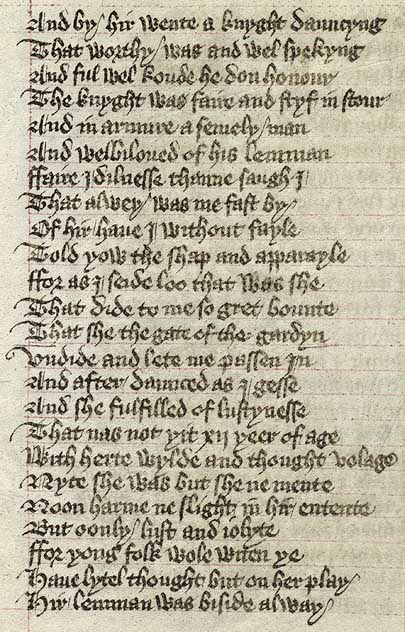 And by hir wente a knyght dauncyng
That worthy was and wel spekyng
And ful wel koude he don honour
The knyght was faire and styf in stour
And in armure a semely man
And welbiloved of his lemman
ffaire Idilnesse thanne saugh I
That alwey was me fast by
Of hir have I without fayle
Told yow the shap and apparayle
ffor as I seide loo that was she
That dide to me so gret bounte
That she the gate of the gardyn
Undide and lete me passen In
And after daunced as I gesse
And she fulfilled of lustynesse
That nas not yit xii yeer of age
With herte wylde and thought volage
Nyce she was but she ne mente
Noon harme ne slight in hir entente
But oonly lust and iolyte
ffor yong folk wole witen ye
Have lytel thought but on her play
Hir lemman was biside alway